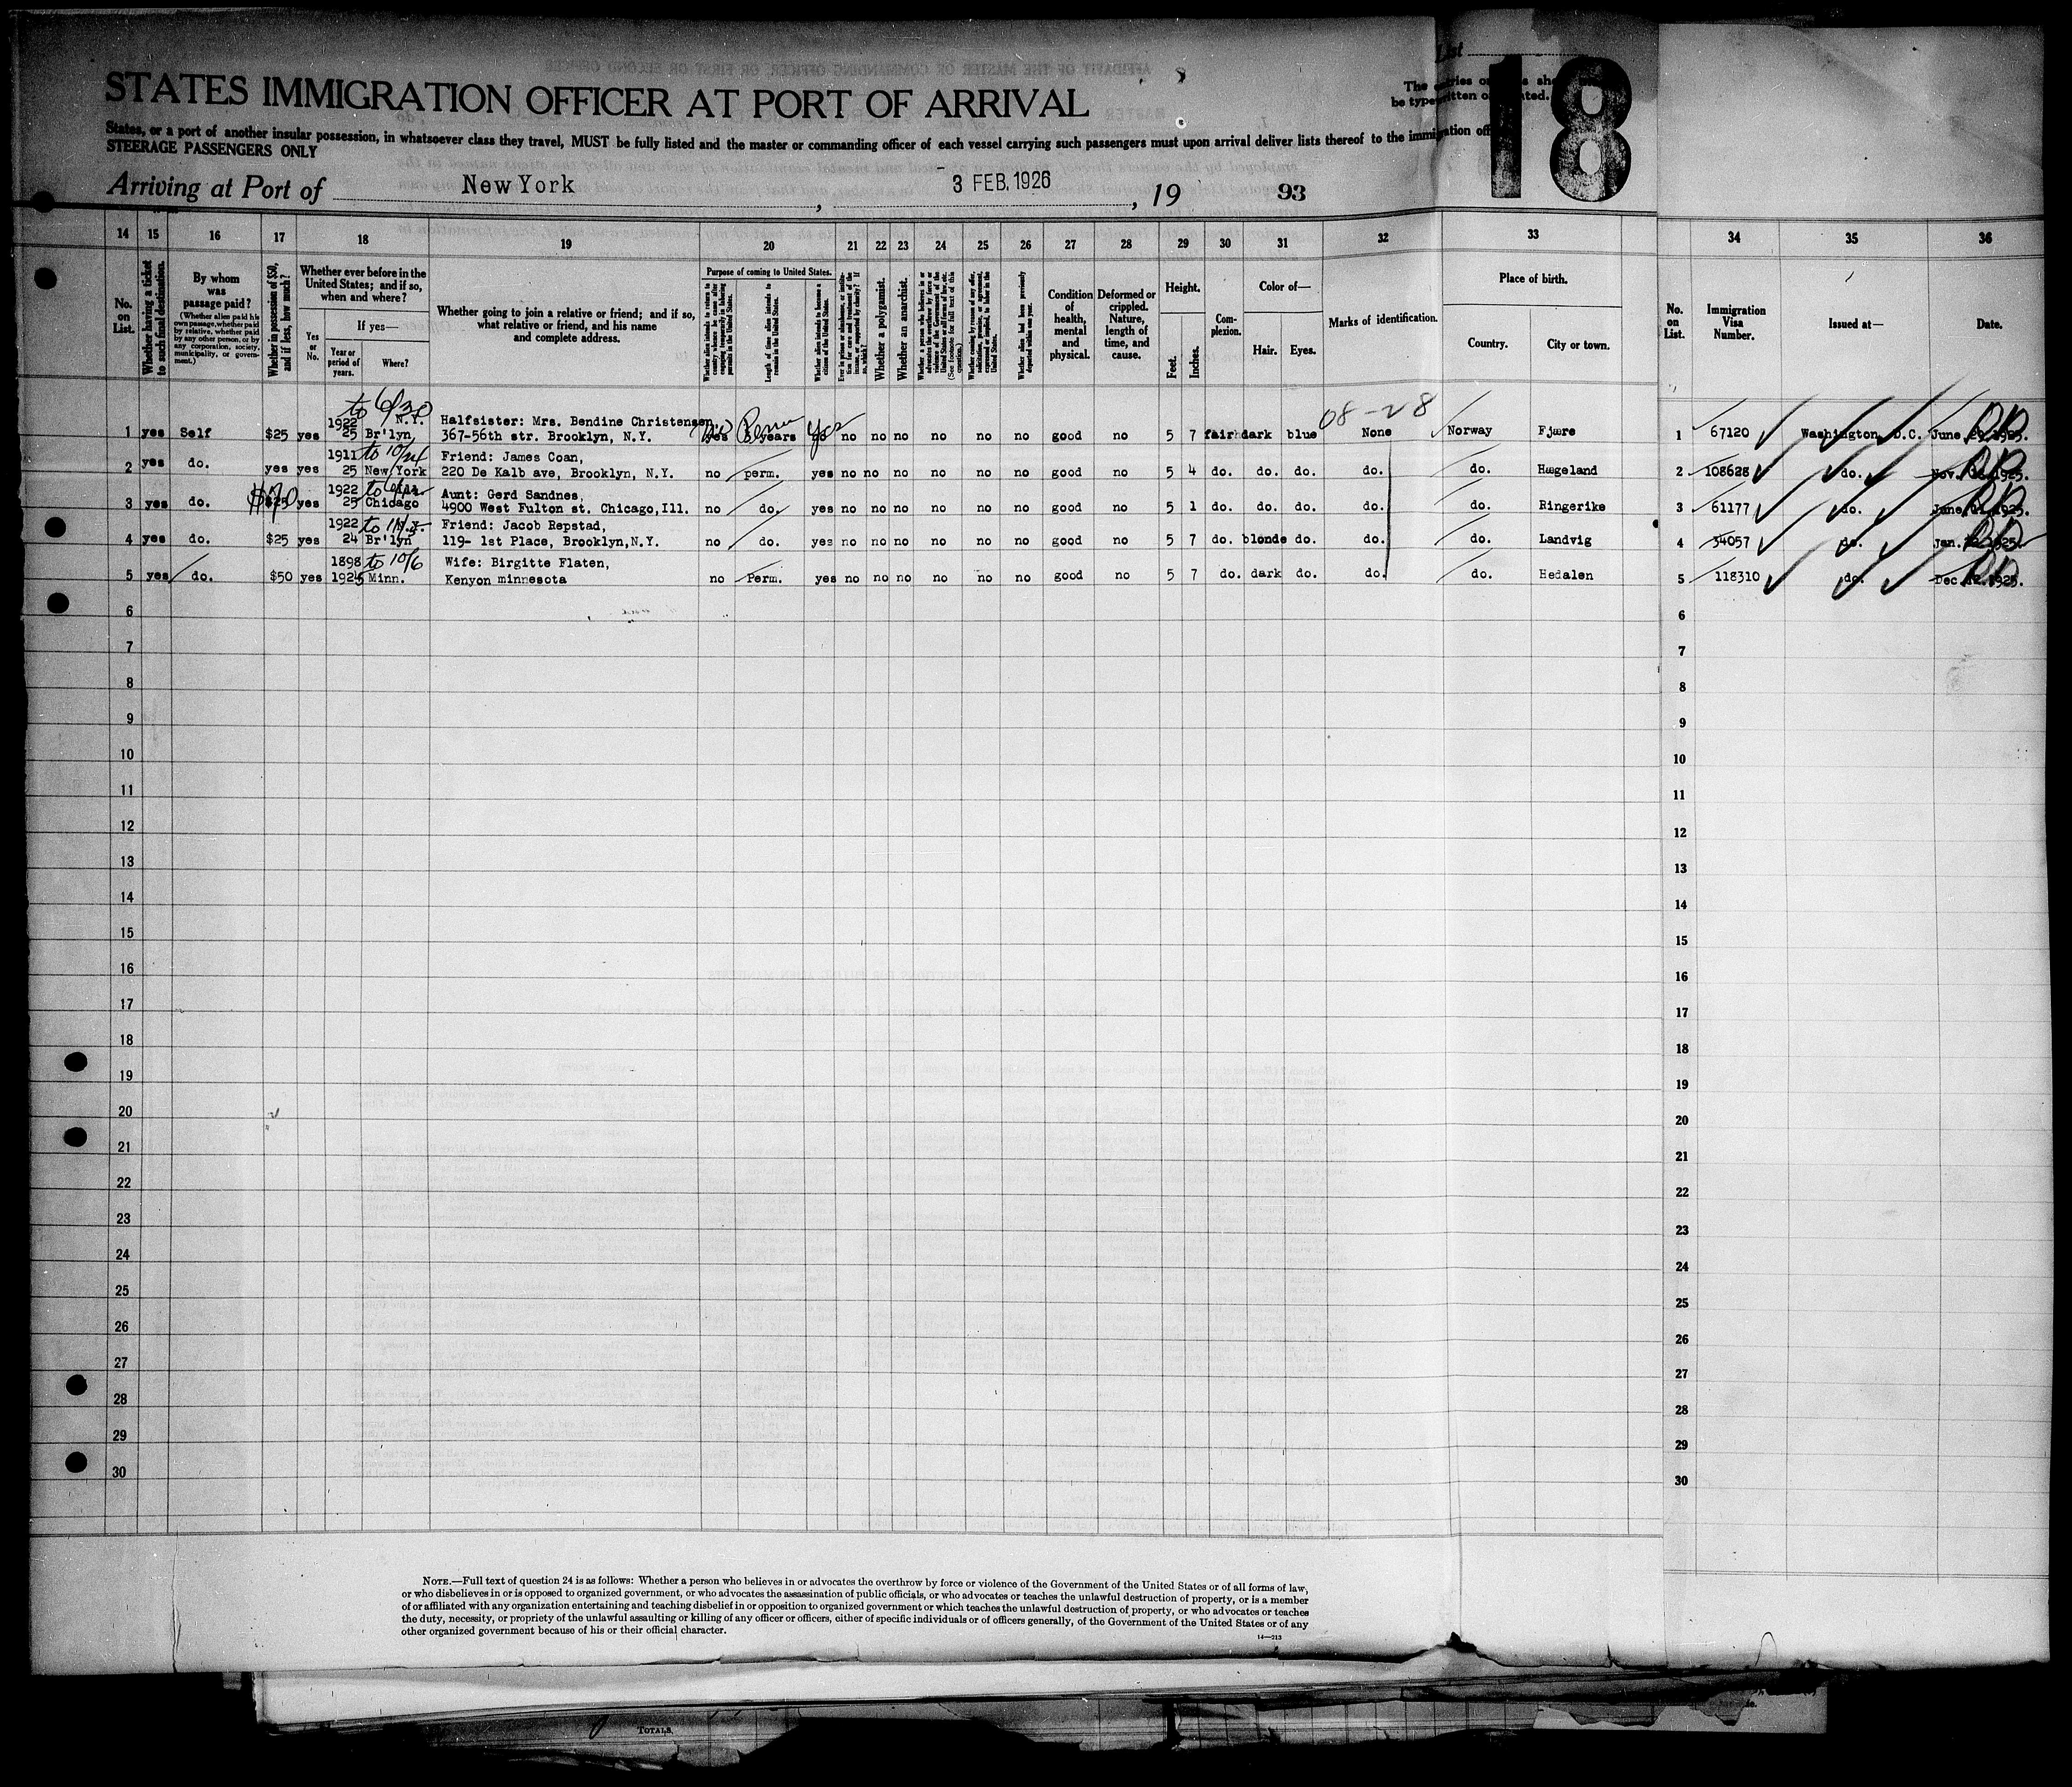 List
The entries on this sh
be typewritten or printed.
18
STATES IMMIGRATION OFFICER AT PORT OF ARRIVAL
States, or a port of another insular possession, in whatsoever class they travel, MUST be fully listed and the master or commanding officer of each vessel carrying such passengers must upon arrival deliver lists thereof to the immigration off
STEERAGE PASSENGERS ONLY
Arriving at Port of New York, 3 FEB. 1926, 19 93
14 15 16 17 18 19 20 21 22 23 24 25 26 27 28 29 30 31 32 33 34 35 36
No. on List.
Whether having a ticket to such final destination.
By whom was passage paid?
(Whether alien paid his own passage, whether paid by relative, whether paid by any other person, or by any corporation, society, municipality, or government.)
Whether in possession of $50, and if less, how much?
Whether ever before in the United States; and if so, when and where?
Yes or No.
If yes—
Year or period of years.
Where?
Whether going to join a relative or friend; and if so, what relative or friend, and his name and complete address.
Purpose of coming to United States.
Length of time alien intends to remain in the United States.
Whether alien intends to become a citizen of the United States.
Whether a polygamist.
Whether an anarchist.
Condition of health, mental and physical.
Deformed or crippled. Nature, length of time, and cause.
Height.
Feet. Inches.
Complexion.
Color of—
Hair. Eyes.
Marks of identification.
Place of birth.
Country. City or town.
No. on List.
Immigration Visa Number.
Issued at—
Date.
to 6/30 08-28
1922 N.Y. Halfsister: Mrs. Bendine Christensen
1 yes Self $25 yes 25 Br'lyn 367-56th str. Brooklyn, N.Y. yes no Perm years yes no no no no no no good no 5 7 fair dark blue None Norway Fjære 1 67120 Washington, D.C. June 1925.
1911 to 10/24 Friend: James Coan,
2 yes do. yes yes 25 New York 220 De Kalb ave, Brooklyn, N.Y. no perm. yes no no no no no no good no 5 4 do. do. do. do. do. Hægeland 2 108628 do. Nov. 1925.
1922 Aunt: Gerd Sandnes,
3 yes do. $70 $25 yes 25 Chicago 4900 West Fulton st. Chicago, Ill. no do. yes no no no no no no good no 5 1 do. do. do. do. do. Ringerike 3 61177 do. June 1925.
1922 Friend: Jacob Repstad,
4 yes do. $25 yes 24 Br'lyn 119- 1st Place, Brooklyn, N.Y. no do. yes no no no no no no good no 5 7 do. blonde do. do. do. Landvig 4 34057 do. Jan. 1925.
1898 to 10/6 Wife: Birgitte Flaten,
5 yes do. $50 yes 1925 Minn. Kenyon minnesota no Perm. yes no no no no no no good no 5 7 do. dark do. do. do. Hedalen 5 118310 do. Dec. 12. 1925.
6 6
7 7
8 8
9 9
10 10
11 11
12 12
13 13
14 14
15 15
16 16
17 17
18 18
19 19
20 20
21 21
22 22
23 23
24 24
25 25
26 26
27 27
28 28
29 29
30 30
NOTE.—Full text of question 24 is as follows: Whether a person who believes in or advocates the overthrow by force or violence of the Government of the United States or of all forms of law,
or who disbelieves in or is opposed to organized government, or who advocates the assassination of public officials, or who advocates or teaches the unlawful destruction of property, or is a member
of or affiliated with any organization entertaining and teaching disbelief in or opposition to organized government or which teaches the unlawful destruction of property, or who advocates or teaches
the duty, necessity, or propriety of the unlawful assaulting or killing of any officer or officers, either of specific individuals or of officers generally, of the Government of the United States or of any
other organized government because of his or their official character.
14—213
TOTALS